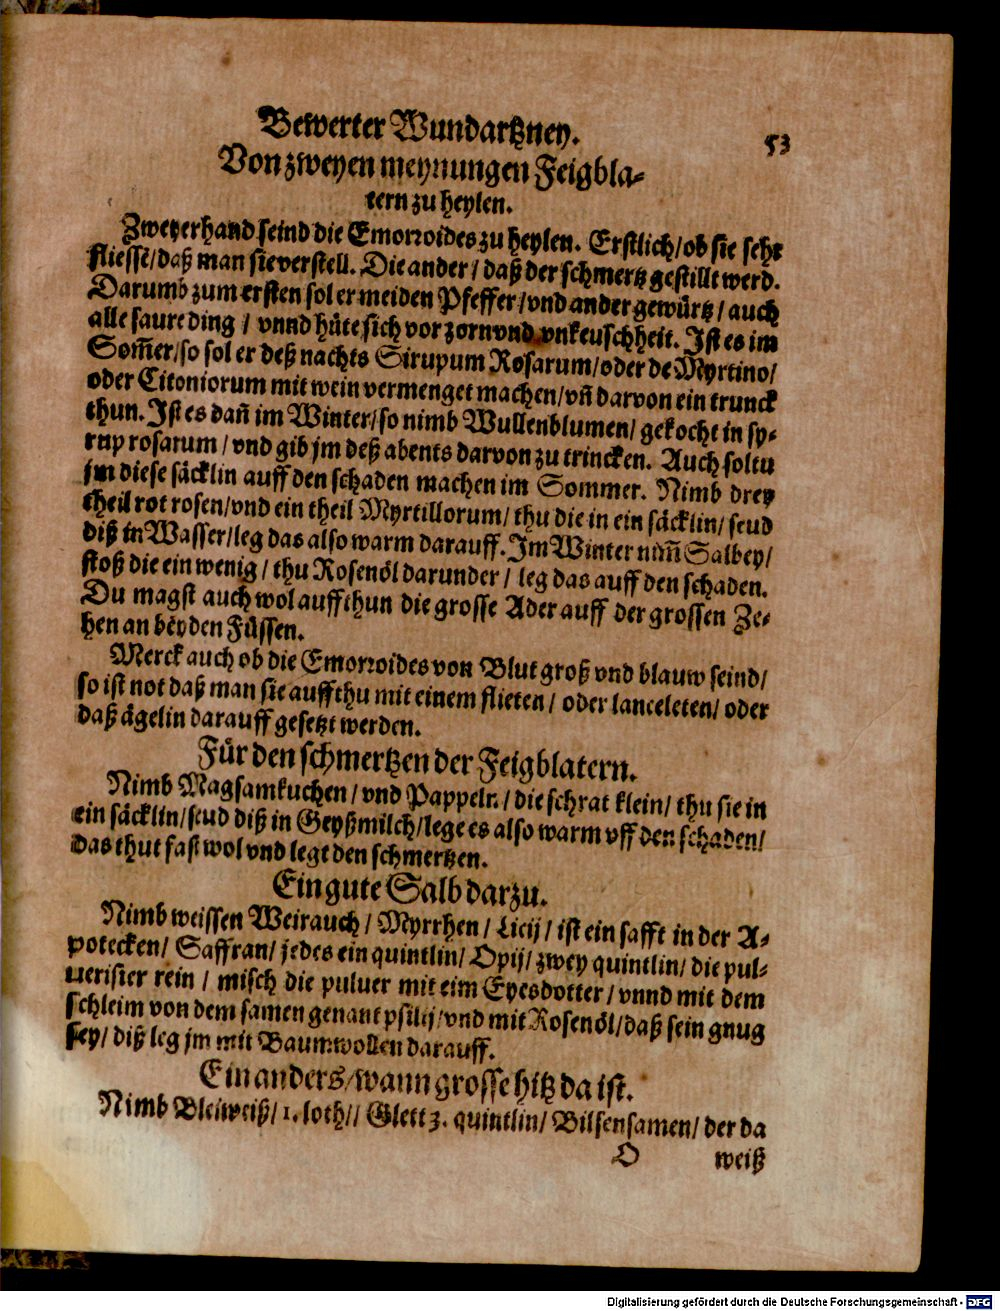 Bewerter Wundartzney. 53
Von zweyen meynungen Feigbla-
tern zu heylen.
Zweyerhand seind die Emorroides zu heylen. Erstlich/ ob sie sehr
fliesse/ daß man sie verstell. Die ander/ daß der schmertz gestillt werd.
Darumb zum ersten sol er meiden Pfeffer/ vnd ander gewürtz/ auch
alle saure ding/ vnnd hüte sich vor zorn vnd vnkeuschheit. Ist es im
Som̃er/ so sol er deß nachts Sirupum Rosarum/ oder de Myrtino/
oder Citoniorum mit wein vermenget machen/ vñ darvon ein trunck
thun. Ist es dañ im Winter/ so nimb Wullenblumen/ gekocht in sy-
rup rosarum/ vnd gib jm deß abents darvon zu trincken. Auch soltu
jm diese säcklin auff den schaden machen im Sommer. Nimb drey
theil rot rosen/ vnd ein theil Myrtillorum/ thu die in ein säcklin/ seud
diß in Wasser/ leg das also warm darauff. Im Winter nim̃ Salbey/
stoß die ein wenig/ thu Rosenöl darunder/ leg das auff den schaden.
Du magst auch wol auffthun die grosse Ader auff der grossen Ze-
hen an beyden Füssen.
Merck auch ob die Emorroides von Blut groß vnd blauw seind/
so ist not daß man sie auffthu mit einem flieten/ oder lanceleten/ oder
daß ägelin darauff gesetzt werden.
Für den schmertzen der Feigblatern.
Nimb Magsamkuchen/ vnd Pappeln/ die schrat klein/ thu sie in
ein säcklin/ seud diß in Geyßmilch/ lege es also warm vff den schaden/
das thut fast wol vnd legt den schmertzen.
Ein gute Salb darzu.
Nimb weissen Weirauch/ Myrrhen/ Licij/ ist ein safft in der A-
potecken/ Saffran/ jedes ein quintlin/ Opij/ zwey quintlin/ die pul-
uerisier rein/ misch die puluer mit eim Eyesdotter/ vnnd mit dem
schleim von dem samen genant psilij/ vnd mit Rosenöl/ daß sein gnug
sey/ diß leg jm mit Baumwollen darauff.
Ein anders/ wann grosse hitz da ist.
Nimb Bleiweiß/ 1. loth// Glett 3. quintlin/ Bilsensamen/ der da
O weiß
Digitalisierung gefördert durch die Deutsche Forschungsgemeinschaft - DFG